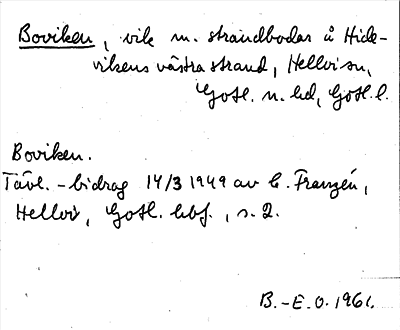 Boviken, vik m. strandbodar å Hide-
vikens västra strand, Hellvi sn,
Gotl. n. hd, Gotl. l.
Boviken.
Tävl.-bidrag 14/3 1949 av C. Franzén,
Hellvi, Gotl. hbf., s. 2.
B.-E.O. 1961.